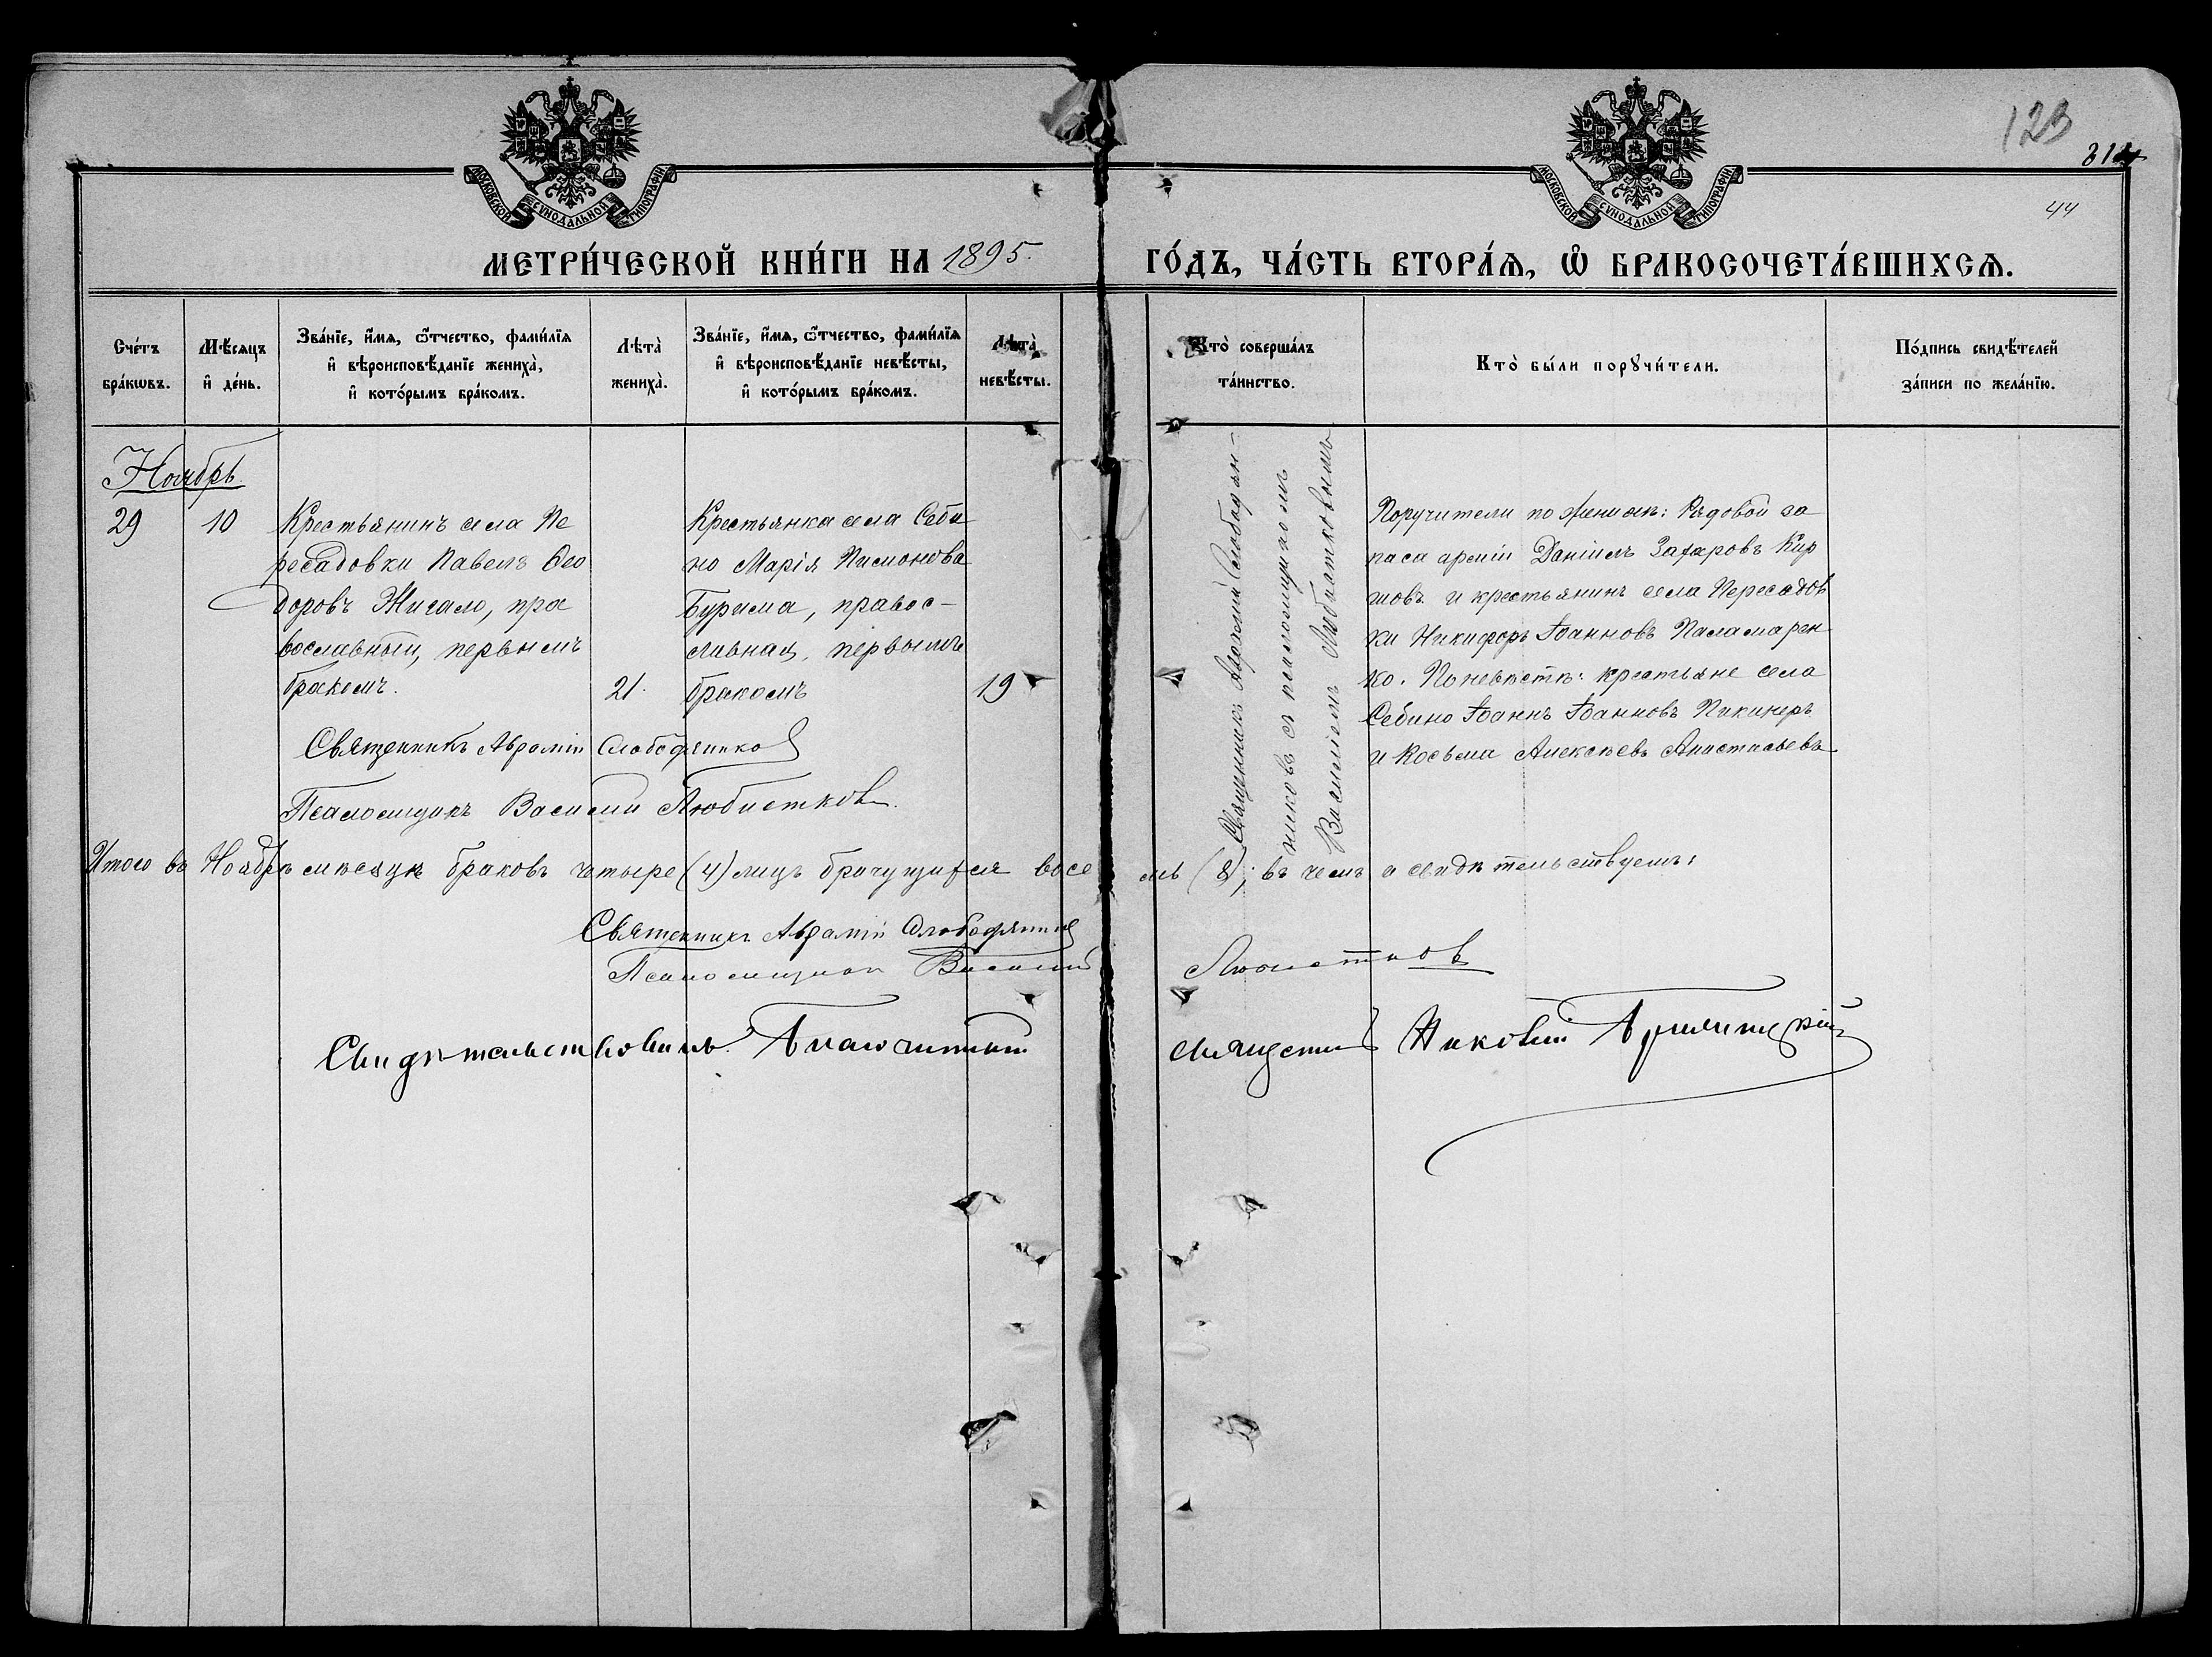 МОСКОВСКОЙ СѴНОДАЛЬНОЙ ТИПОГРАФІИ
МОСКОВСКОЙ СѴНОДАЛЬНОЙ ТИПОГРАФІИ
123
44
МЕТРИ́ЧЕСКОЙ КНИ́ГИ НА 1895. ГО́ДЪ, ЧА́СТЬ ВТОРА́Ѧ, Ѽ БРАКОСОЧЕТА́ВШИХСѦ.
Сче́тъ
бра́кѡвъ.
Мѣ́сяцъ
и҆ де́нь.
Зва́нїе, и҆́мѧ, ѻ҆́тчество, фами́лїѧ
и҆ вѣроисповѣ́данїе жениха̀,
и҆ кото́рымъ бра́комъ.
Лѣта̀
жениха̀.
Зва́нїе, и҆́мѧ, ѻ҆́тчество, фами́лїѧ
и҆ вѣроисповѣ́данїе невѣ́сты,
и҆ кото́рымъ бра́комъ.
Лѣта̀
невѣ́сты.
Кто̀ соверша́лъ
та́инство.
Кто̀ бы́ли порꙋчи́тели.
По́дпись свидѣ́телей
за́писи по жела́нїю.
Ноябрь.
29
10
Крестьянинъ села Пе
ресадовки Павелъ Ѳео
доровъ Жигало, пра
вославный, первымъ
бракомъ.
21.
Крестьянка села Себи
но Марія Пимонова
Бурима, правос-
лавная, первымъ
бракомъ
19
Священникъ Аврамій Слободян-
никовъ съ псаломщикомъ
Василіемъ Любистковымъ
Поручители по женихѣ: Рядовой за
паса арміи Даніилъ Захаровъ Кир
шовъ и крестьянинъ села Пересадов
ки Никифоръ Іоанновъ Паламарен
ко. По невѣстѣ: крестьяне села
Себино Іоаннъ Іоанновъ Пикинеръ
и Косьма Алексѣевъ Анастасьевъ
Священникъ Аврамій Слободянников
Псаломщикъ Василий Любистковъ.
Итого въ Ноябрѣ мѣсяцѣ браковъ четыре (4) лицъ брачущихся восемь (8); въ чемъ и свидѣтельствуемъ:
Священникъ Аврамій Слободянников
Псаломщикъ Василий Любистков
Свидѣтельствовалъ: Благочинный священникъ